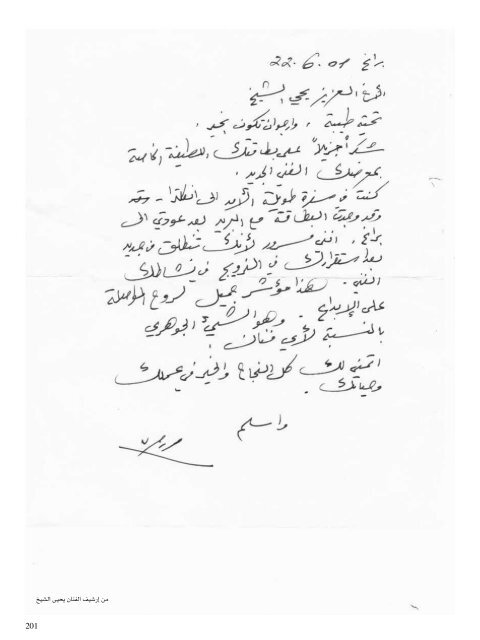 براغ 22.6.01
الأخ العزيز يحيى الشيخ
تحية طيبة ، وارجو ان تكون بخير .
شكراً جزيلاً على بطاقتك اللطيفة الخاصة
بمعرضك الفني الجديد .
كنت في سفرة طويلة الى انكلترا -
وقد وجدت البطاقة مع البريد بعد عودتي الى
براغ . انني مسرور لأنك تنطلق من جديد
بعد استقرارك في النرويج في نشاطك
الفني . هذا مؤشر جميل لروح المواصلة
على الإبداع . وهو الشيء الجوهري
بالنسبة لأي فنان .
اتمنى لك كل النجاح والخير في عملك
وحياتك .
واسلم
من إرشيف الفنان يحيى الشيخ
201